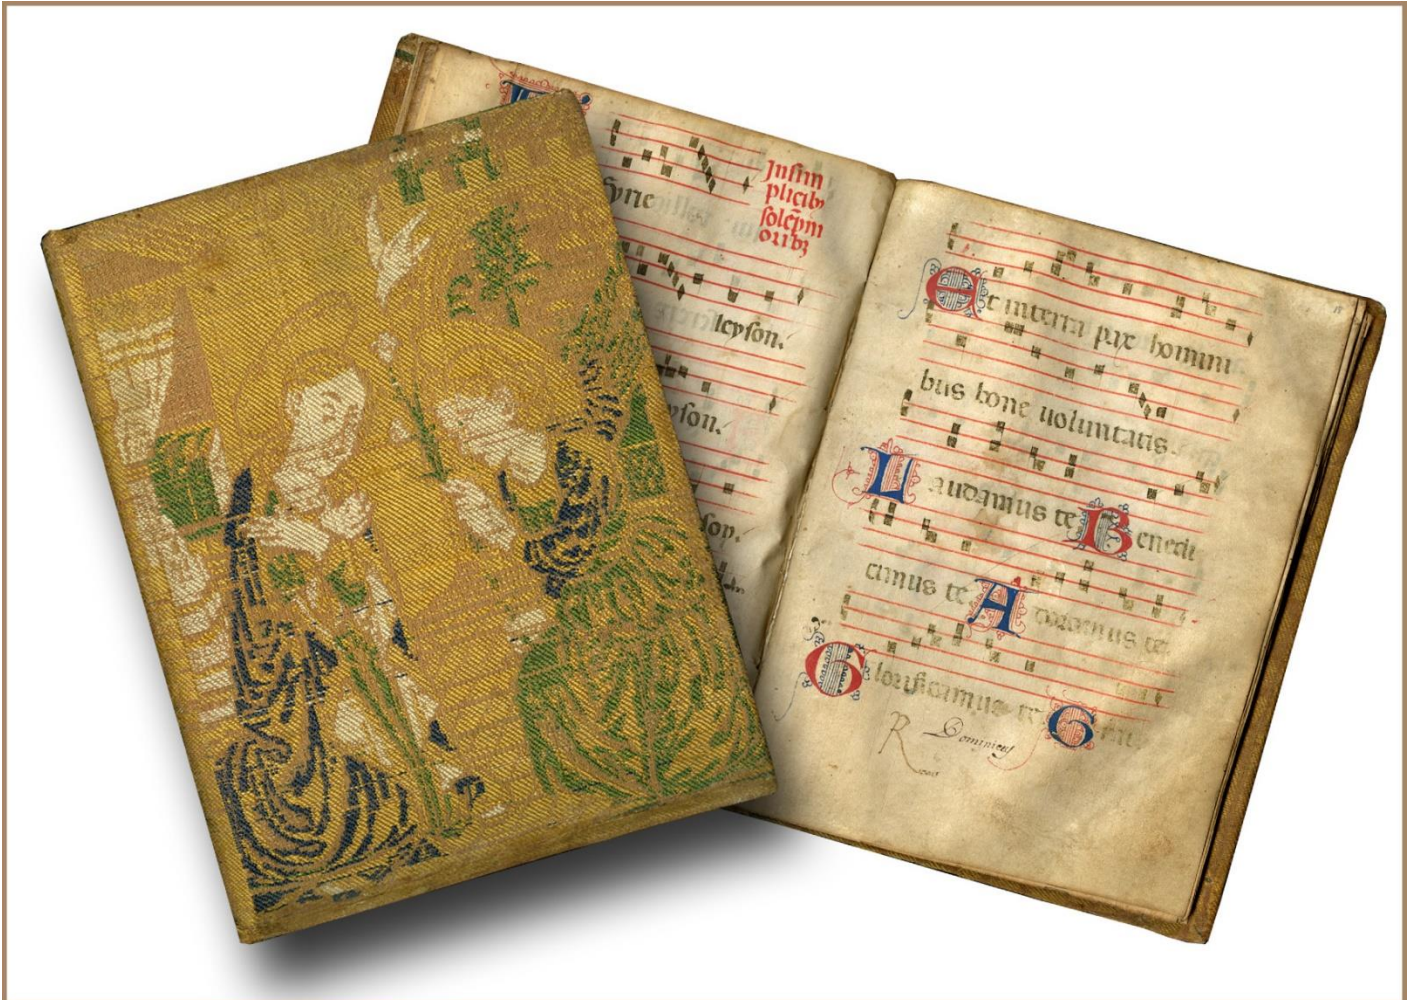 In sim
plicib᷒
solēpm
orib᷒
Kyrie
leyson.
yson.
son.
Et in terra pax homini
bus bone uoluntatis.
Laudamus te Benedi
cimus te Adoramus te
Glorificamus te G
R Dominicus